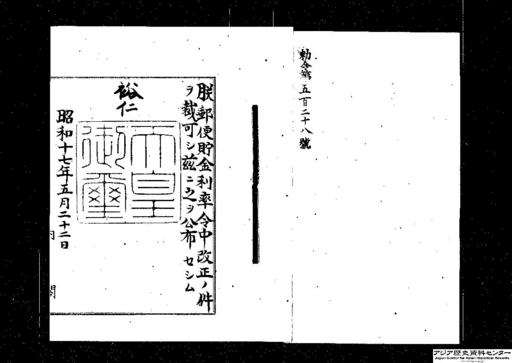 勅令第五百二十八號
朕郵便貯金利率令中改正ノ件
ヲ裁可シ茲ニ之ヲ公布セシム
裕仁
天皇御璽
昭和十七年五月二十二日
アジア歴史資料センター
Japan Center for Asian Historical Records